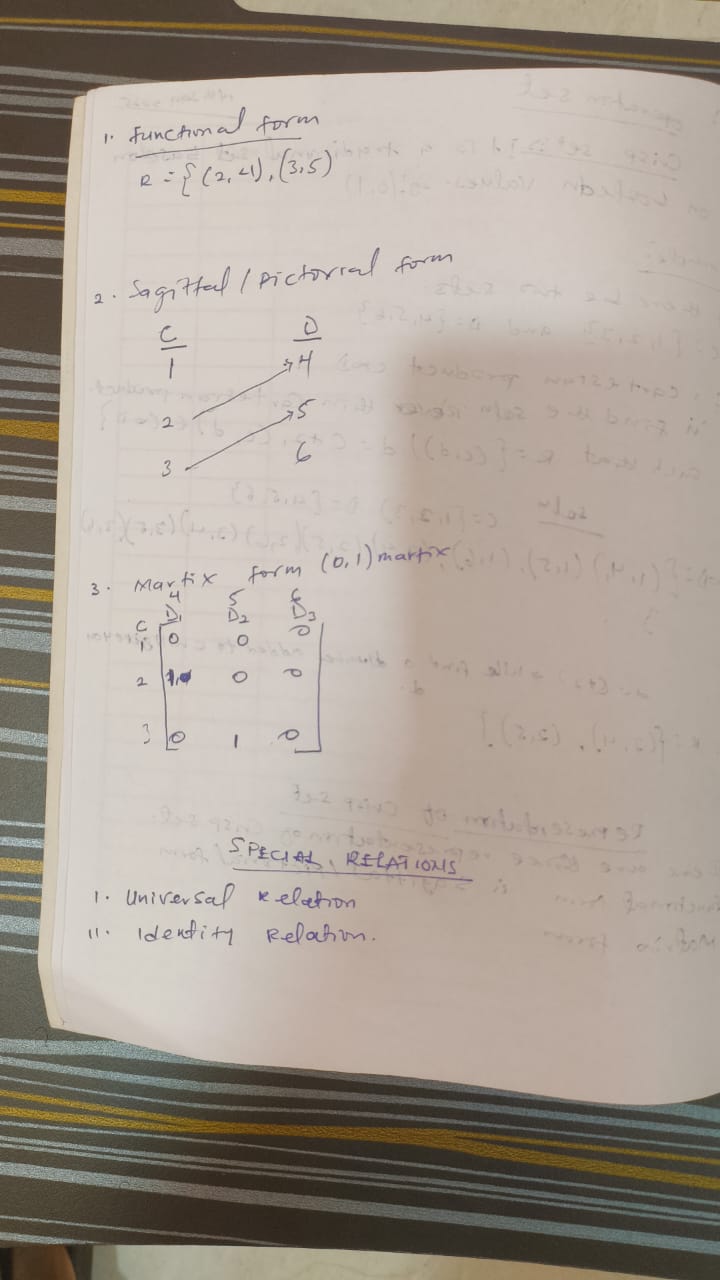 1. functional form
R = { (2,4), (3,5)
2. Sagittal / Pictorial form
C D
1 4
2 5
3 6
3. Martix form (0,1) martix
4 5 6
C D1 D2 D3
1 0 0 0
2 1 0 0
3 0 1 0
SPECIAL RELATIONS
1. Universal Relation
11. Identity Relation.